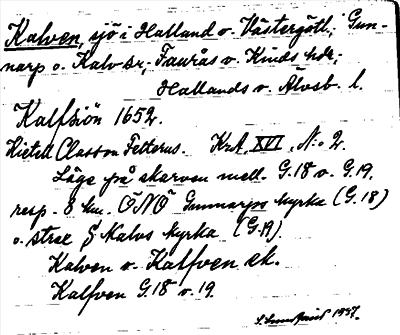 Kalven, sjö i Halland o. Västergötl.; Gun-
narp o. Kalv sr; Faurås o. Kinds hdr;
Hallands o. Älvsb. l.
Kalfsiön 1652.
Kietell Classon Felterus. KrA. XVI. No 2.
Läge på skarven mell. G.18 o. G.19.
resp. 8 km. ÖNÖ Gunnarps kyrka (G.18)
o. strax S Kalvs kyrka (G.19).
Kalven o. Kalfven ek.
Kalfven G.18 o. 19.
1937.